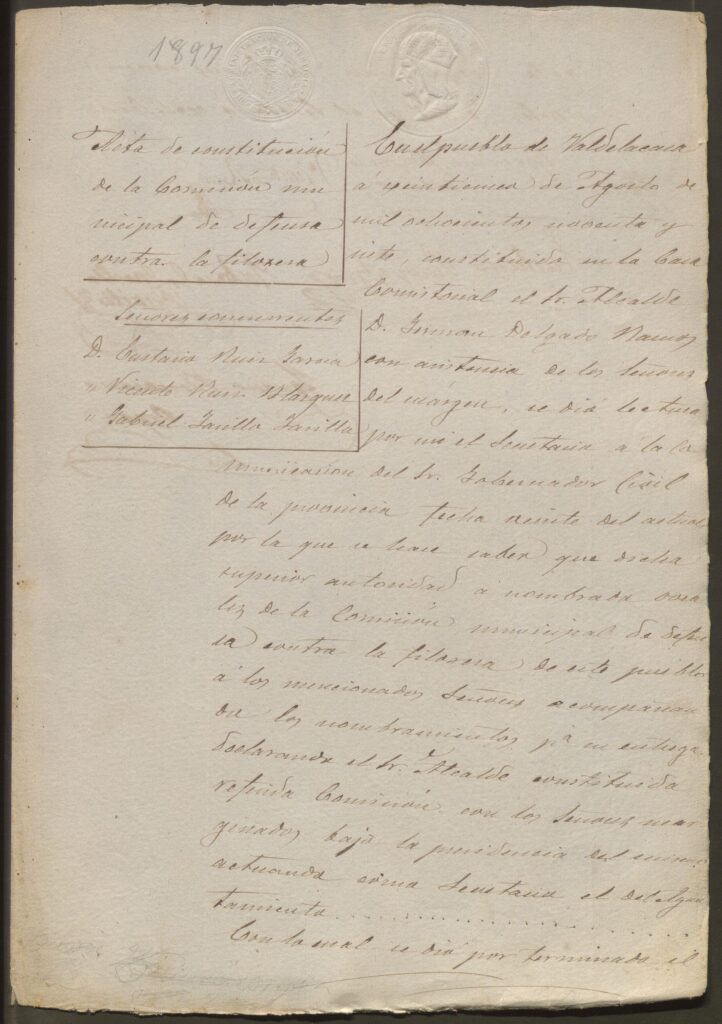 1897
Acta de constitución
de la Comisión mu
nicipal de defensa
contra la filoxera
Señores concurrentes
D. Eustasio Ruiz Garcia
" Vicente Ruiz Blazquez
" Gabriel Parilla Parilla
En el pueblo de Valdelacasa
á veinticinco de Agosto de
mil ochocientos noventa y
siete, constituido en la Casa
Consistorial el Sr. Alcalde
D. German Delgado Ramos
con asistencia de los Señores
del márgen, se dió lectura
por mi el Secretario á la co
municacion del Sr. Gobernador Civil
de la provincia fecha veinte del actual
por la que se hace saber que dicha
superior autoridad á nombrado voca
les de la Comisión municipal de defen
sa contra la filoxera de este pueblo
á los mencionados Señores acompañan
do los nombramientos pª su entrega
declarando el Sr. Alcalde constituida
referida Comisión con los Señores mar
ginados bajo la presidencia del mismo
actuando como Secretario el del Ayun
tamiento
Con lo cual se dió por terminado el